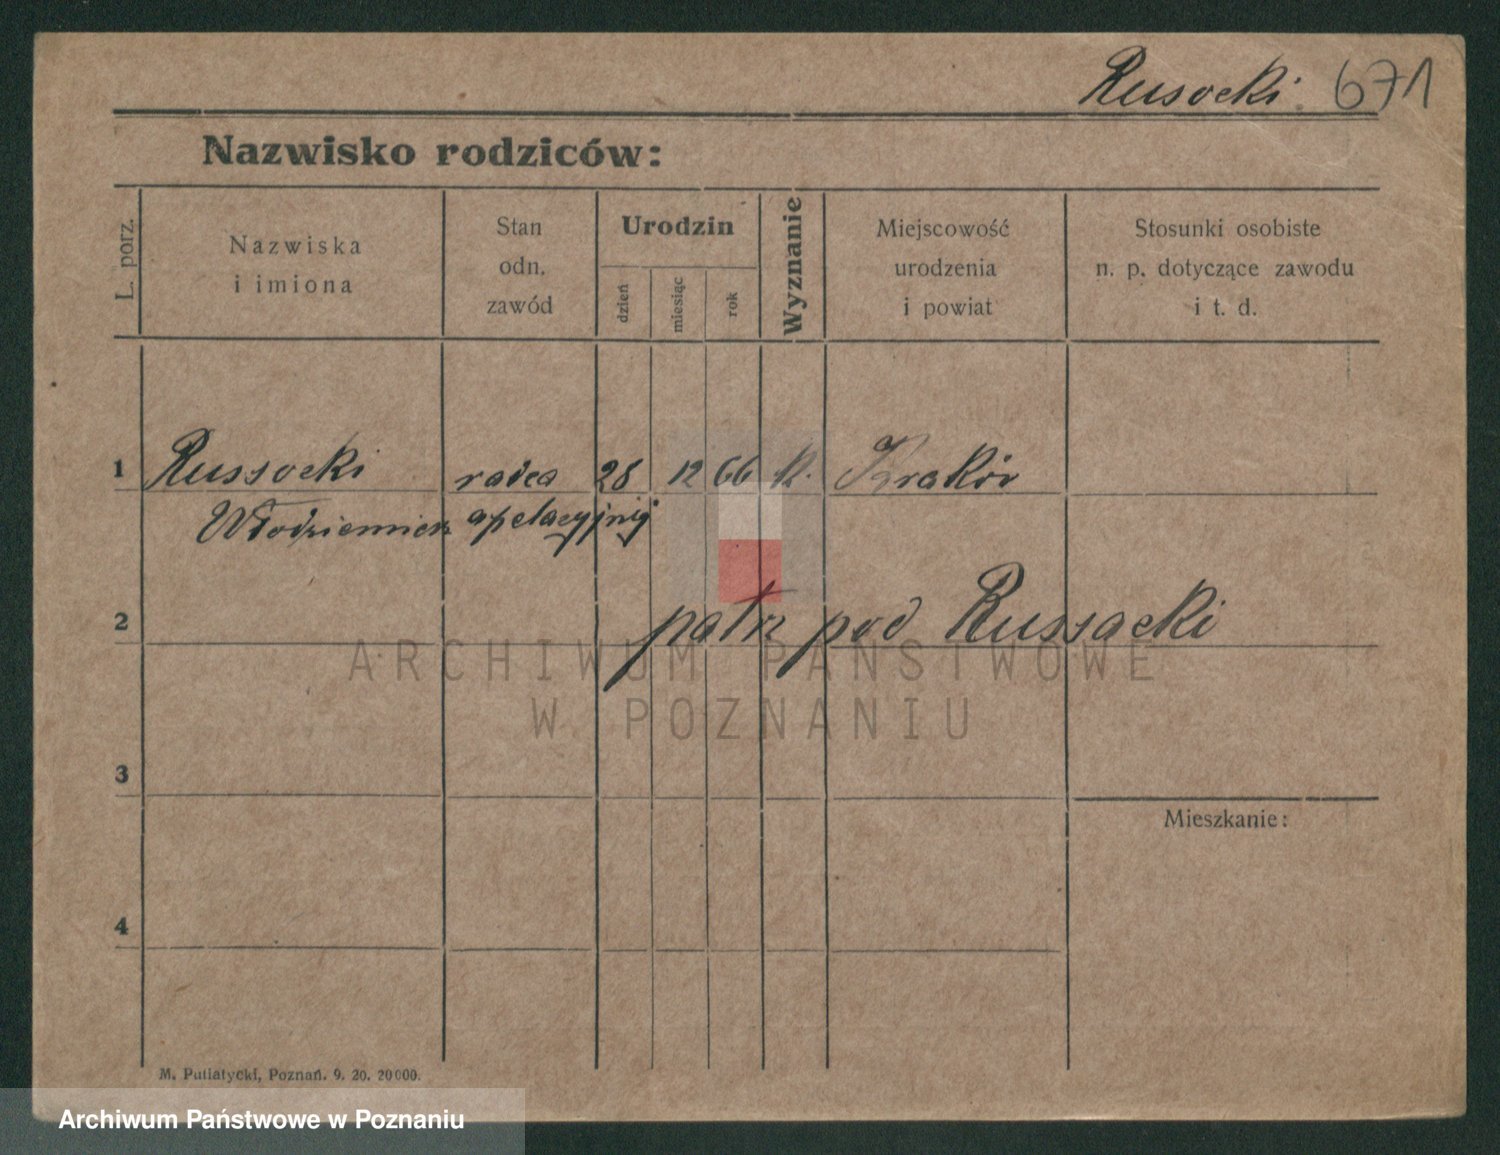 Rusocki 671
Nazwisko rodziców:
L. porz.
Nazwiska
i imiona
Stan
odn.
zawód
Urodzin
dzień
miesiąc
rok
Wyznanie
Miejscowość
urodzenia
i powiat
Stosunki osobiste
n. p. dotyczące zawodu
i t. d.
1 Russocki radca 28 12 66 k. Kraków
Włodzimierz apelacyjnij
2 patrz pod Russacki
ARCHIWUM PAŃSTWOWE
W POZNANIU
3
Mieszkanie:
4
M. Putiatycki, Poznań. 9. 20. 20000.
Archiwum Państwowe w Poznaniu